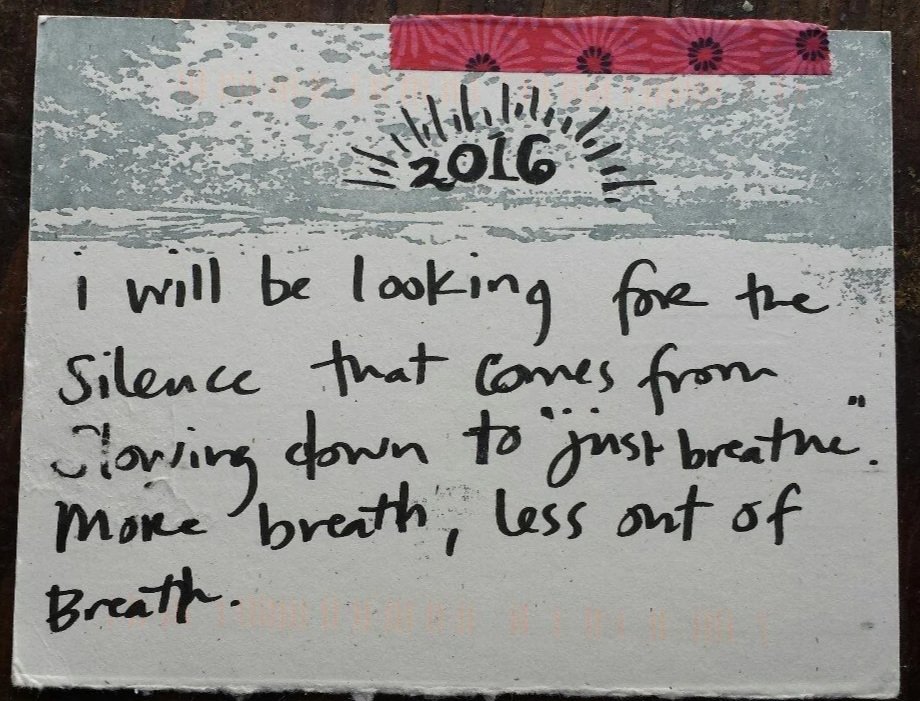 2016
i will be looking for the
Silence that comes from
Slowing down to "just breathe".
More breath, less out of
Breath.